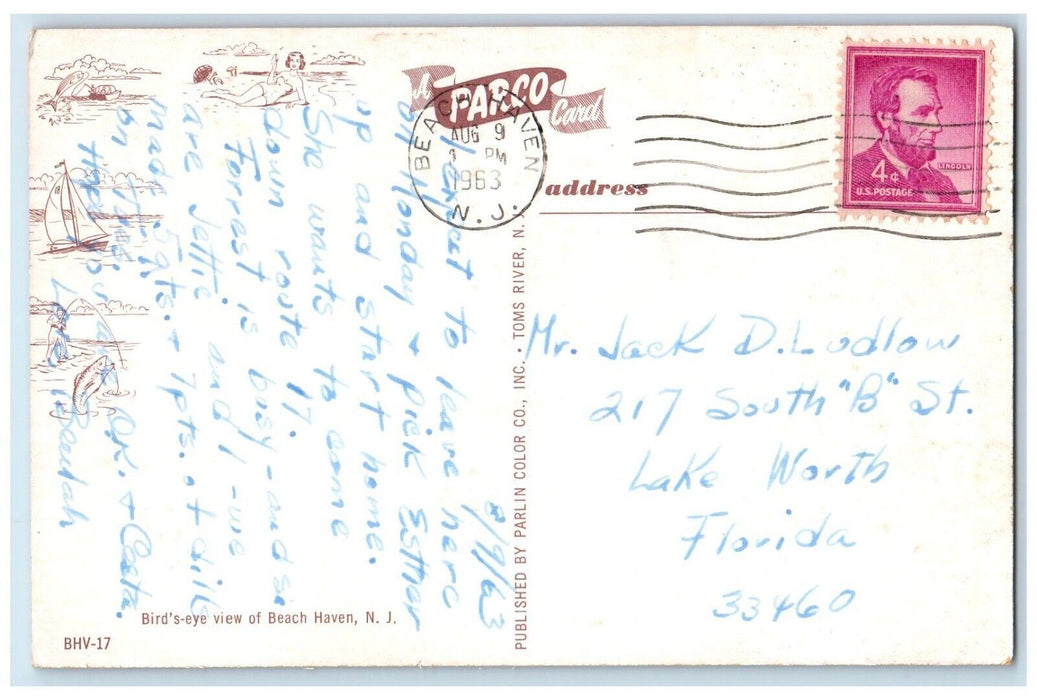 A PARCO Card
BEACH HAVEN
AUG 9
1 PM
1963
N. J.
4¢
LINCOLN
U.S. POSTAGE
address
8/9/63
Expect to leave here
on Monday + pick Esther
up and start home.
She wants to come
down route 17.
Forrest is busy - and so
are Jettie and I - we
made 5 qts. + 7 pts. of dills
on this.
Hope you are O.K. +
Love Beulah
Mr. Jack D. Ludlow
217 South "B" St.
Lake Worth
Florida
33460
PUBLISHED BY PARLIN COLOR CO., INC. · TOMS RIVER, N.
Bird's-eye view of Beach Haven, N. J.
BHV-17